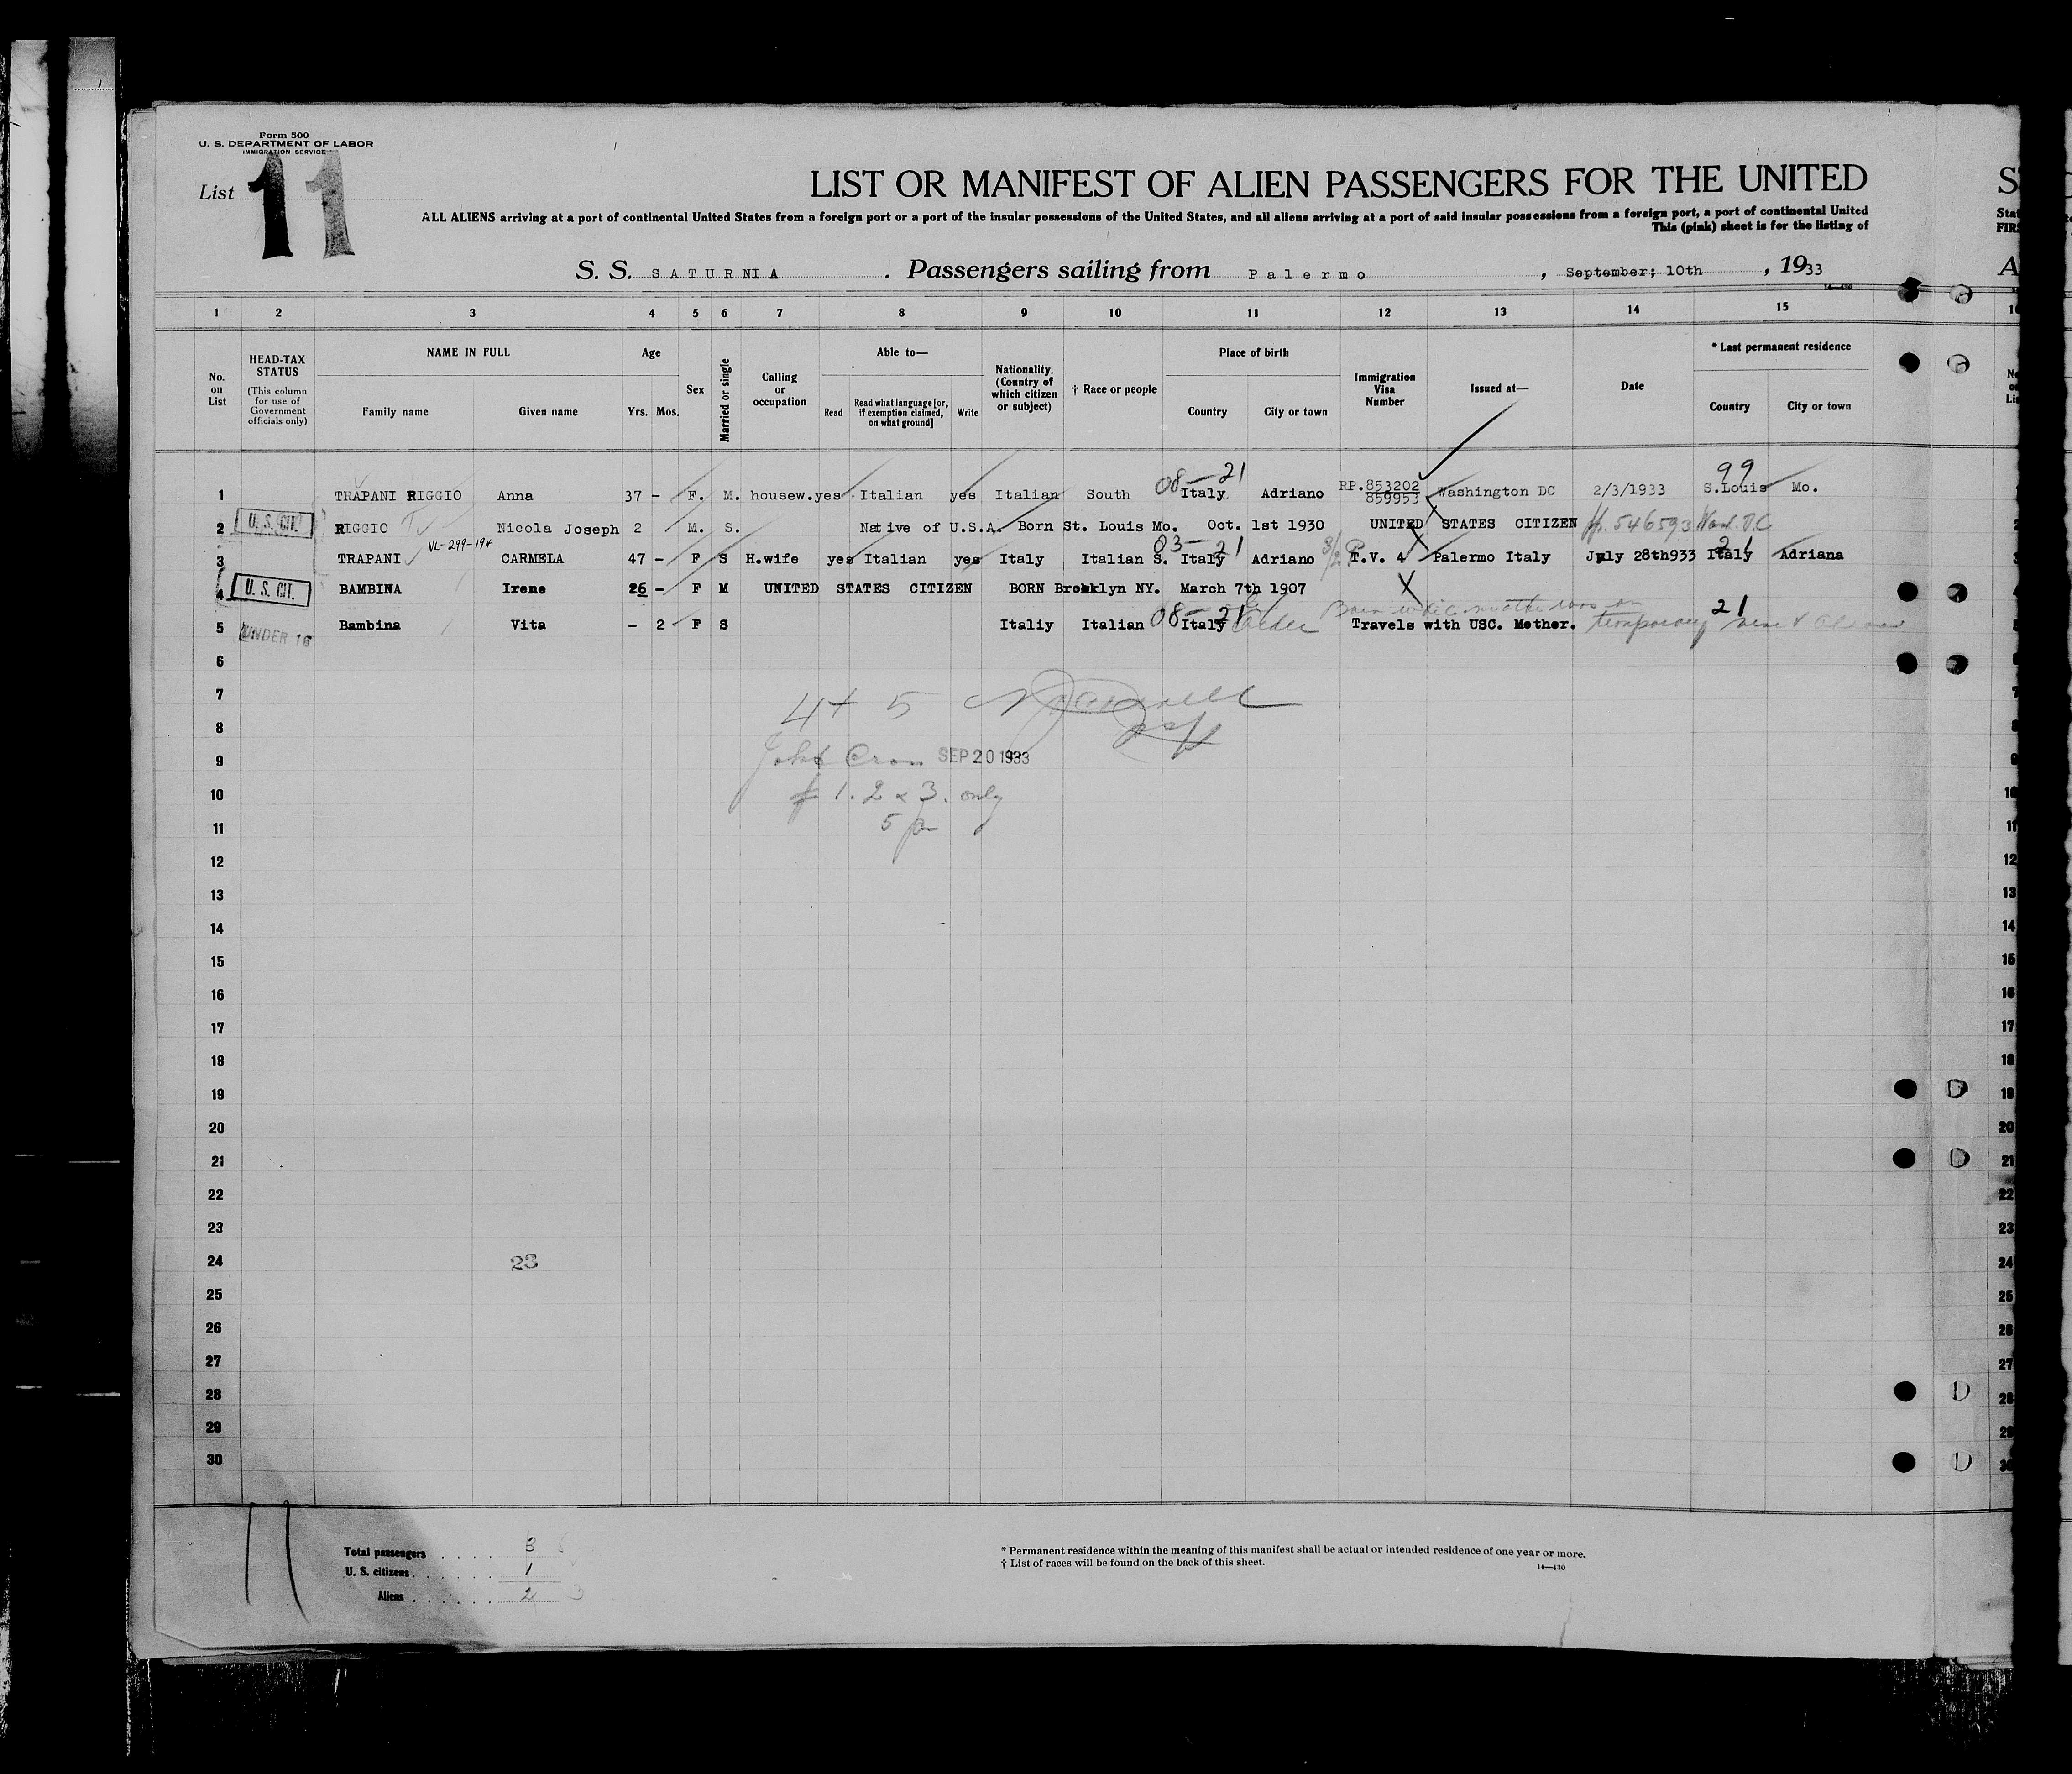 Form 500
U. S. DEPARTMENT OF LABOR
IMMIGRATION SERVICE
List 11
LIST OR MANIFEST OF ALIEN PASSENGERS FOR THE UNITED
ALL ALIENS arriving at a port of continental United States from a foreign port or a port of the insular possessions of the United States, and all aliens arriving at a port of said insular possessions from a foreign port, a port of continental United
This (pink) sheet is for the listing of
S. S. SATURNIA . Passengers sailing from Palermo , September; 10th , 1933
14—430
1 2 3 4 5 6 7 8 9 10 11 12 13 14 15
No. on List
HEAD-TAX STATUS (This column for use of Government officials only)
NAME IN FULL Family name Given name
Age Yrs. Mos.
Sex
Married or single
Calling or occupation
Able to— Read Read what language [or, if exemption claimed, on what ground] Write
Nationality. (Country of which citizen or subject)
† Race or people
Place of birth Country City or town
Immigration Visa Number
Issued at—
Date
* Last permanent residence Country City or town
08—21 99
1 TRAPANI RIGGIO Anna 37 - F. M. housew. yes Italian yes Italian South Italy Adriano RP. 853202 859953 Washington DC 2/3/1933 S.Louis Mo.
2 U. S. CIT. RIGGIO Nicola Joseph 2 M. S. Native of U.S.A. Born St. Louis Mo. Oct. 1st 1930 UNITED STATES CITIZEN 546593 Wash. D.C
VL-299-194 03—21 21
3 TRAPANI CARMELA 47 - F S H.wife yes Italian yes Italy Italian S. Italy Adriano T.V. 4 Palermo Italy July 28th933 Italy Adriana
4 U. S. CIT. BAMBINA Irene 26 - F M UNITED STATES CITIZEN BORN Brooklyn NY. March 7th 1907
08—21 Born while mother was on 21
5 UNDER 16 Bambina Vita - 2 F S Italiy Italian Italy Travels with USC. Mother. temporary
6
7
4 + 5
8
9 John SEP 20 1933
10 # 1. 2 & 3. only
11
12
13
14
15
16
17
18
19
20
21
22
23
24 23
25
26
27
28
29
30
11
Total passengers . . . . 3
U. S. citizens . . . . . . 1
Aliens . . . . . . 2 3
* Permanent residence within the meaning of this manifest shall be actual or intended residence of one year or more.
† List of races will be found on the back of this sheet.
14—430